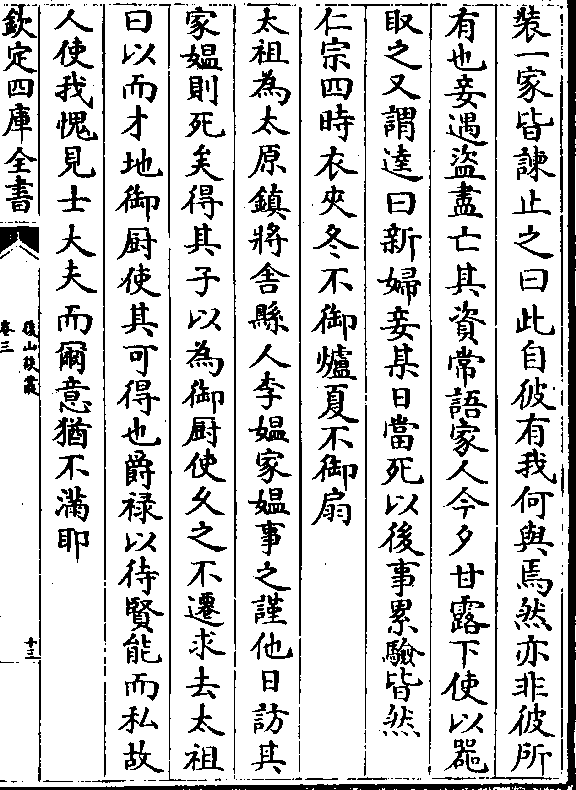 裝一家皆諫止之曰此自彼有我何與焉然亦非彼所
有也妾遇盜盡亡其資常語家人今夕甘露下使以器
取之又謂達曰新婦妾某日當死以後事累驗皆然
仁宗四時衣夾冬不御爐夏不御扇
太祖為太原鎮將舍縣人李媼家媼事之謹他日訪其
家媼則死矣得其子以為御厨使乆之不遷求去太祖
曰以而才地御厨使其可得也爵禄以待賢能而私故
人使我愧見士大夫而爾意猶不滿耶
欽定四庫全書
後山談叢
卷三
十三